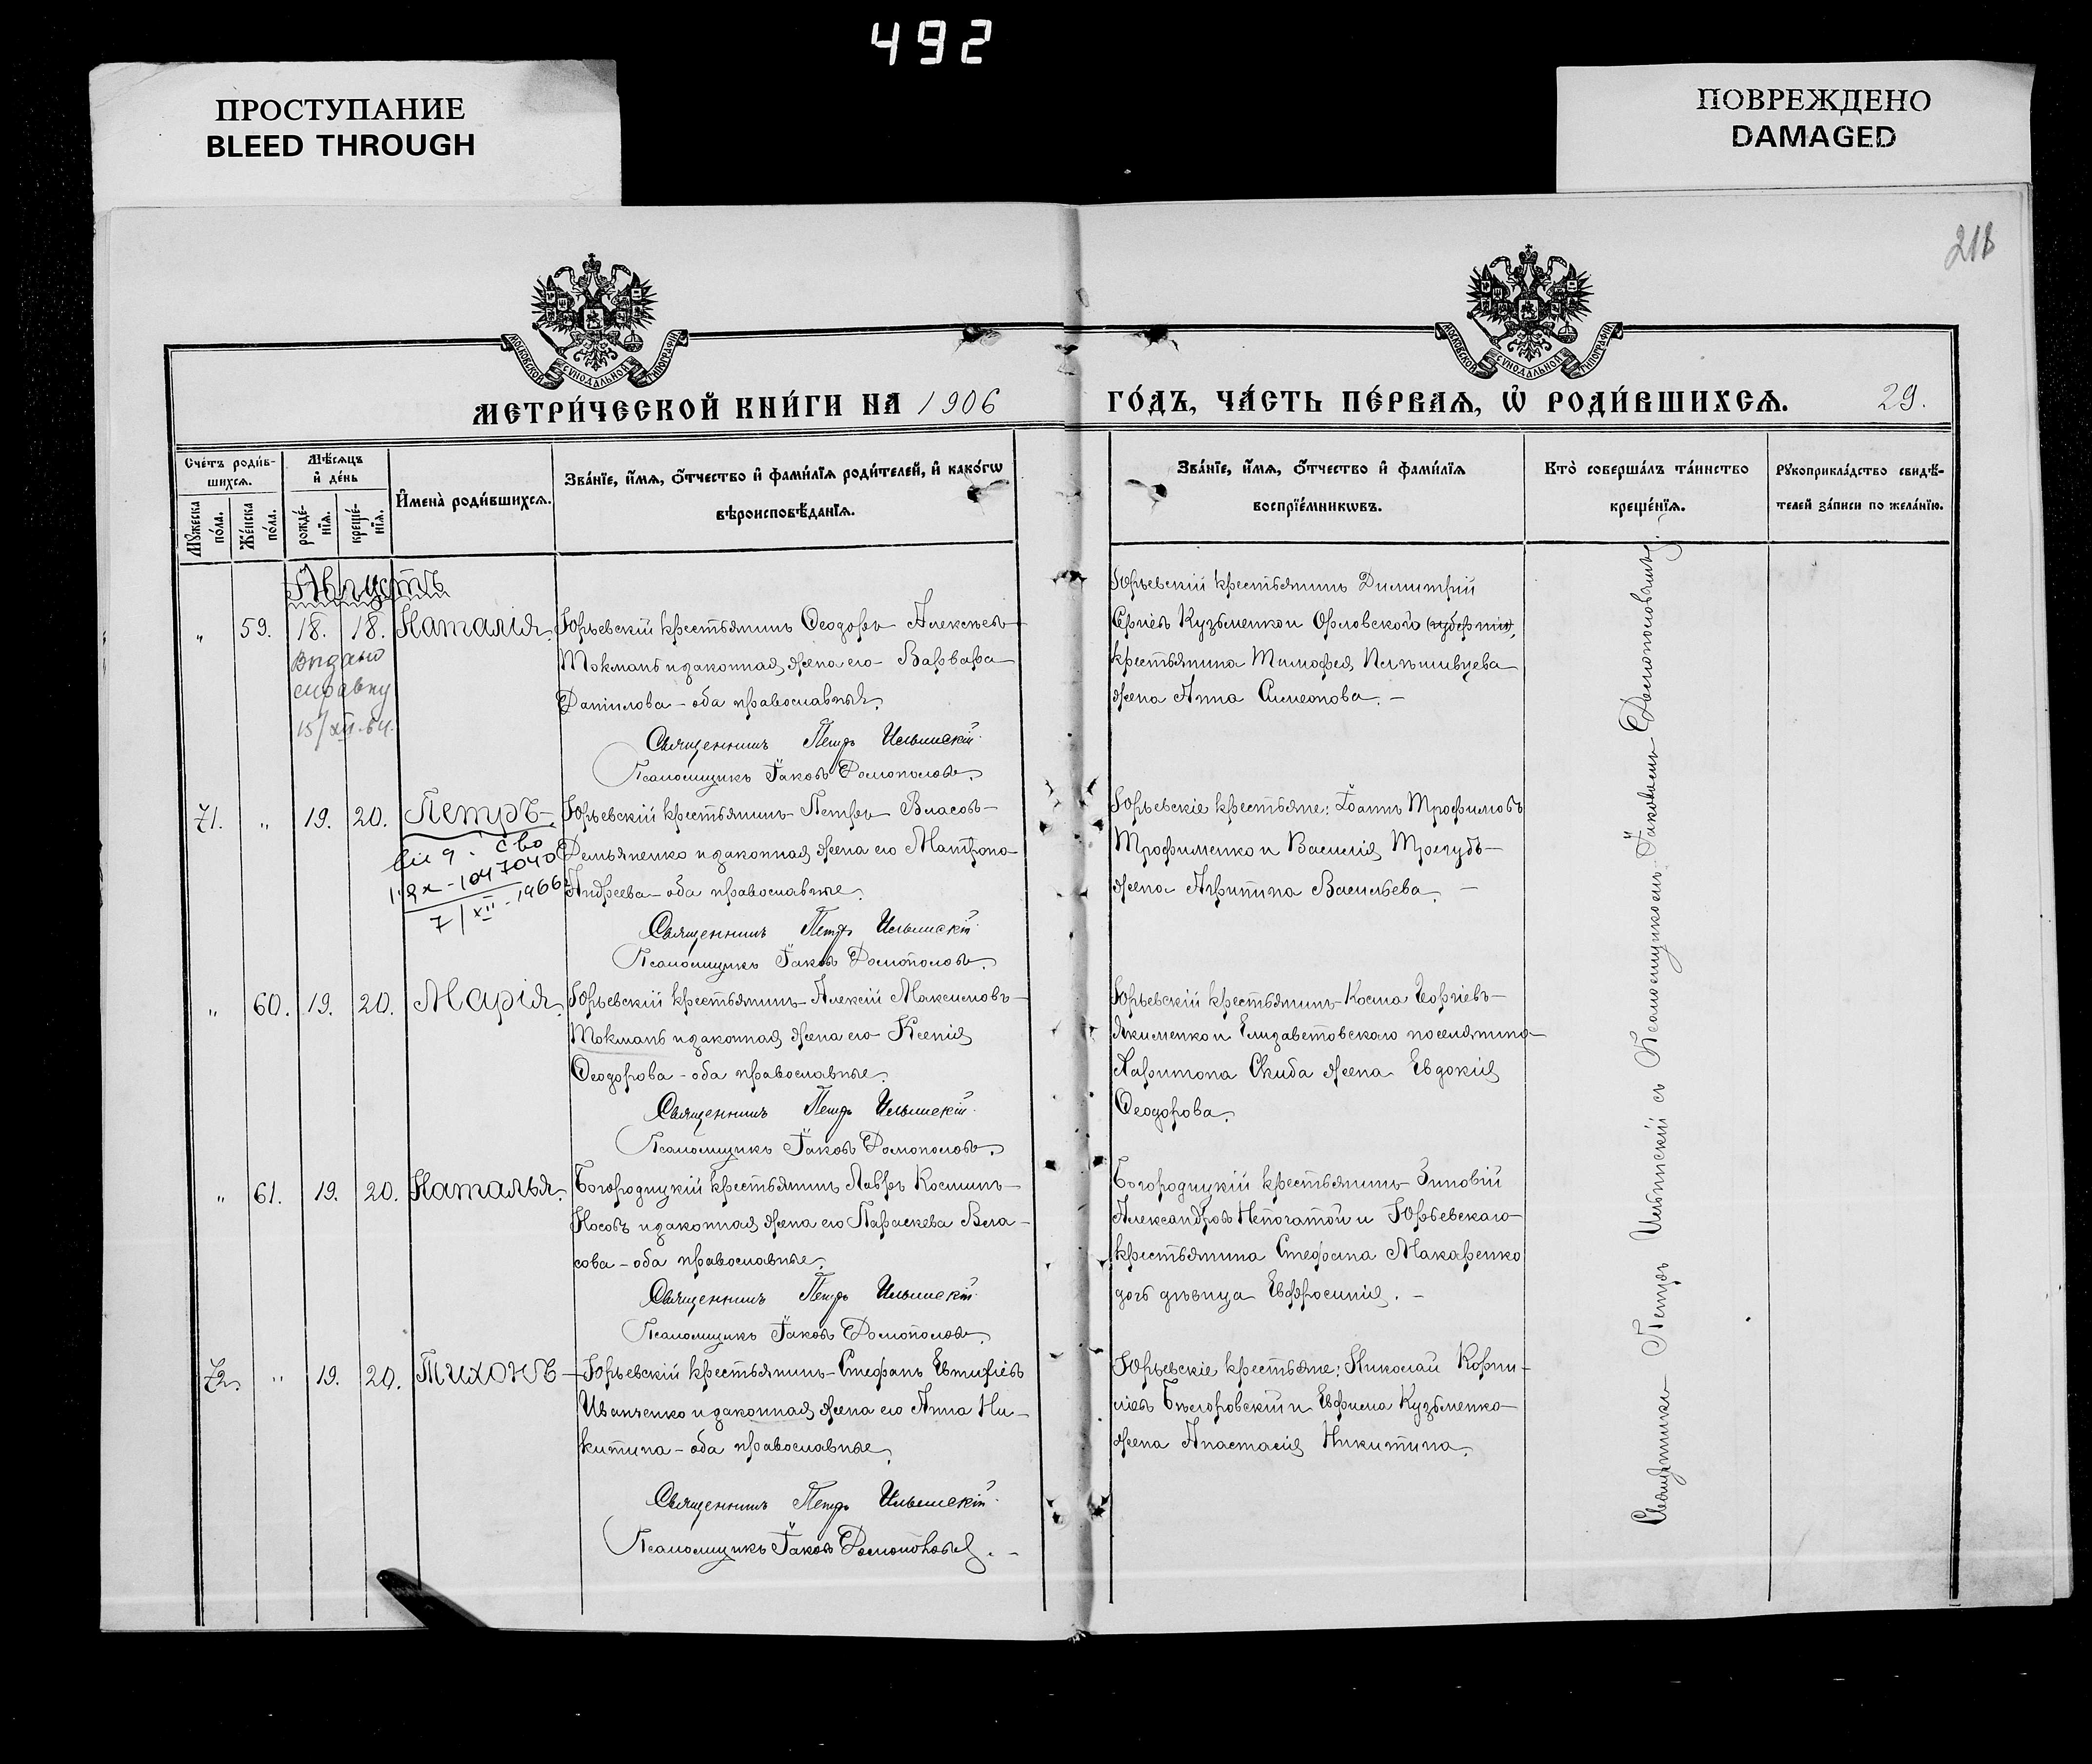 492
ПРОСТУПАНИЕ
BLEED THROUGH
ПОВРЕЖДЕНО
DAMAGED
218
МОСКОВСКОЙ СѴНОДАЛЬНОЙ ТИПОГРАФІИ
МОСКОВСКОЙ СѴНОДАЛЬНОЙ ТИПОГРАФІИ
МЕТРИ́ЧЕСКОЙ КНИ́ГИ НА 1906
ГО́ДЪ, ЧА́СТЬ ПЕ́РВАѦ, Ѡ РОДИ́ВШИХСѦ. 29.
Сче́тъ роди́в-
шихсѧ.
Мꙋжеска по́ла.
Же́нска по́ла.
Мѣ́сѧцъ и де́нь
рожде́-
нїѧ.
креще́-
нїѧ.
Имена̀ роди́вшихсѧ.
Зва́нїе, и́мѧ, ѻ́тчество и фами́лїѧ роди́телей, и како́гѡ
вѣроисповѣ́данїѧ.
Зва́нїе, и́мѧ, ѻ́тчество и фами́лїѧ
воспрїе́мникѡвъ.
Кто̀ соверша́лъ та́инство
креще́нїѧ.
Рꙋкоприкла́дство свидѣ́-
телей за́писи по жела́нїю.
Августъ
„ 59. 18. 18. Наталія.
Выдано
справку
15/XII-64.
Юрьевскій крестьянинъ Ѳеодоръ Алексѣевъ
Токмань и законная жена его Варвара
Данилова – оба православные.
Священникъ Петръ Ильинскій
Псаломщикъ Іаковъ Домонтовъ
Юрьевскій крестьянинъ Димитрій
Сергіевъ Кузьменко и Орловской губерніи,
крестьянина Тимофея
жена Анна Симеонова. –
71. „ 19. 20. Петръ
с-во
7/XII-1966
Юрьевскій крестьянинъ Петръ Власовъ
Демьяненко и законная жена его Матрона
Андреева – оба православные.
Священникъ Петръ Ильинскій
Псаломщикъ Іаковъ
Юрьевскіе крестьяне: Іоаннъ Трофимовъ
Трофименко и Василія
жена Васильева. –
„ 60. 19. 20. Марія.
Юрьевскій крестьянинъ Алексій Максимовъ
Токмань и законная жена его Ксенія
Ѳеодорова – оба православные.
Священникъ Петръ Ильинскій
Псаломщикъ Іаковъ
Юрьевскій крестьянинъ Косма Георгіевъ
Якименко и Елизаветовскаго поселянина
Харитона Скиба жена Евдокія
Ѳеодорова.
„ 61. 19. 20. Наталья.
Богородицкій крестьянинъ Лавръ Косминъ
Носовъ и законная жена его Параскева Вла-
сова – оба православные.
Священникъ Петръ Ильинскій
Псаломщикъ Іаковъ
Богородицкій крестьянинъ Зиновій
Александровъ Непочатой и Юрьевскаго
крестьянина Стефана Макаренко
дочь дѣвица Евфросинія. –
72. „ 19. 20. Тихонъ
Юрьевскій крестьянинъ Стефанъ Евтифіевъ
Иванченко и законная жена его Анна Ни-
китина – оба православные.
Священникъ Петръ Ильинскій
Псаломщикъ Іаковъ
Юрьевскіе крестьяне: Николай Корни-
ліевъ и Евфима Кузьменко
жена Анастасія Никитина.
Священникъ Петръ Ильинскій съ Псаломщикомъ Іаковомъ